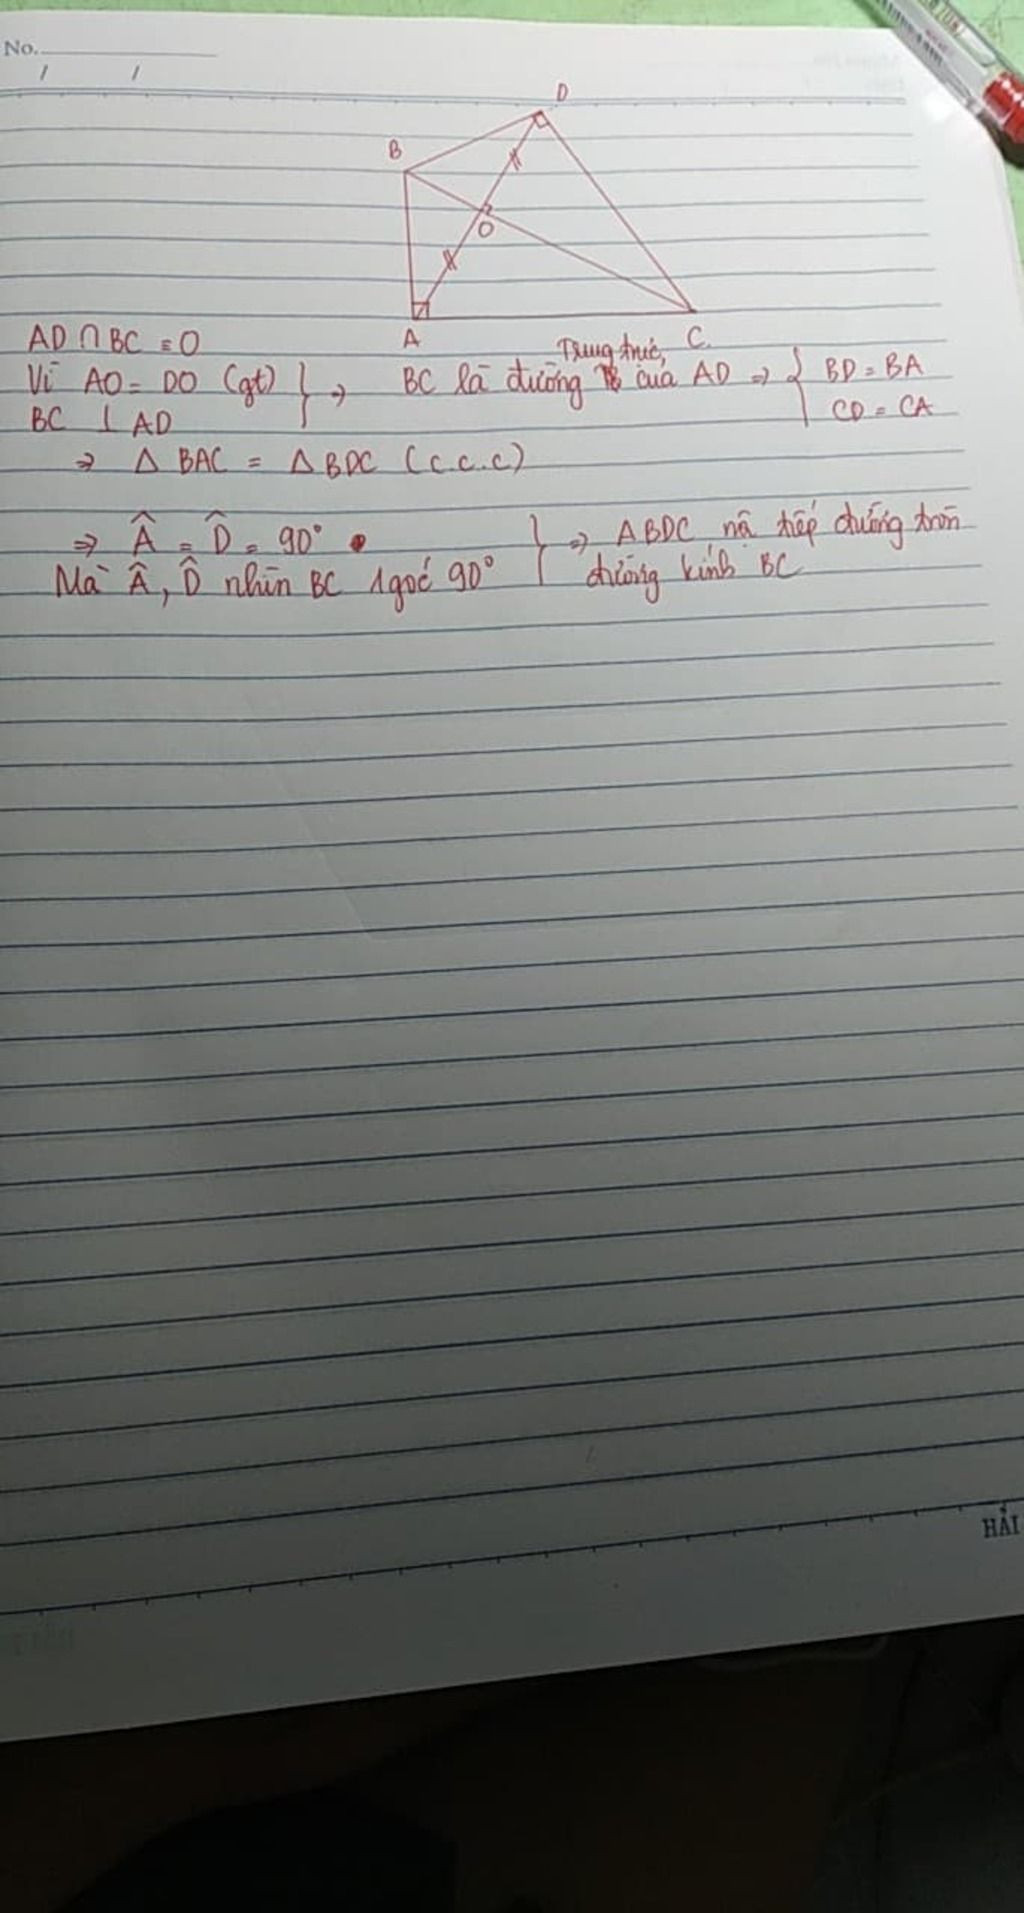 No.
/ /
D
B
O
A
C.
AD ∩ BC = O
Vì AO = DO (gt)
BC ⊥ AD
} ⇒ BC là đường Trung trực của AD ⇒ { BD = BA
CD = CA
⇒ Δ BAC = Δ BDC (c.c.c)
⇒ Â = D̂ = 90°
Mà Â, D̂ nhìn BC 1 góc 90°
} ⇒ ABDC nội tiếp đường tròn
đường kính BC
HẢI